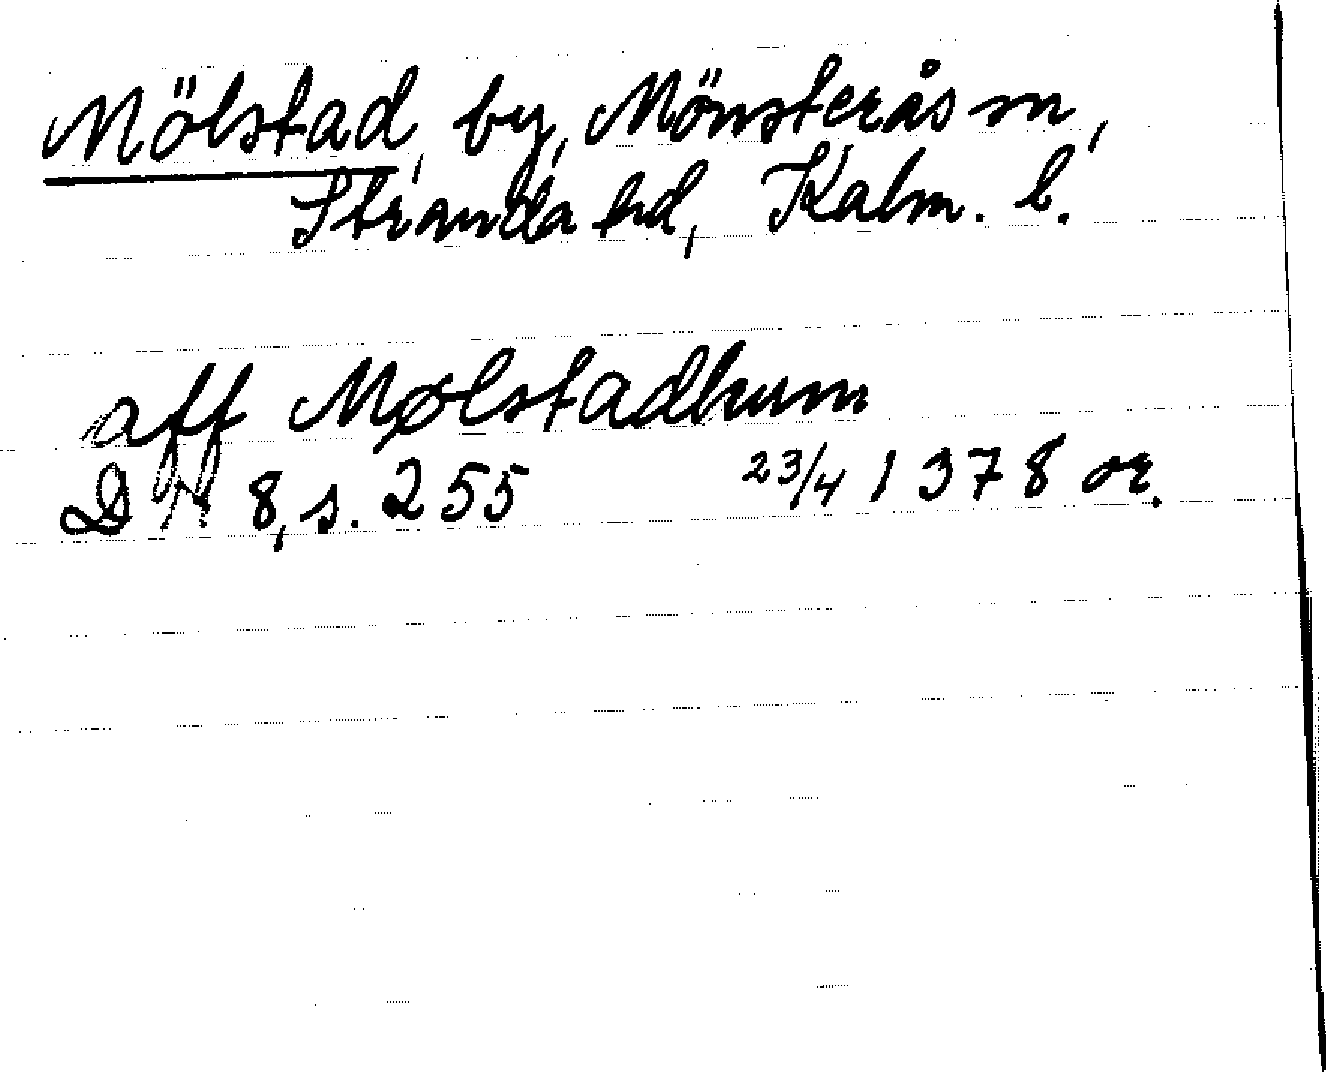 Mölstad, by, Mönsterås sn,
Stranda hd, Kalm. l.
aff Mølstadhum
DN 8, s. 255 23/4 1378 or.